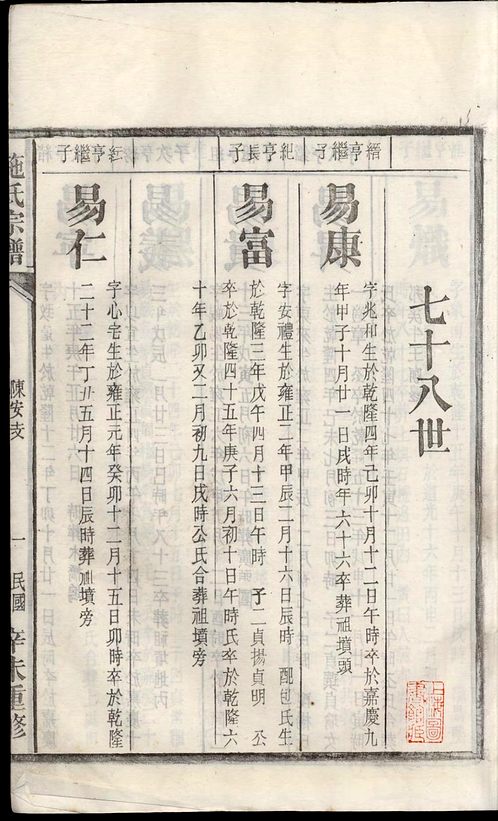 七十八世
縉亨繼子
易康
字兆和生於乾隆四年己卯十月十二日午時卒於嘉慶九
年甲子十月廿一日戌時年六十六卒葬祖墳頭
紀亨長子
易富
字安禮生於雍正二年甲辰二月十六日辰時 配氏生
於乾隆三年戊午四月十三日午時 子二貞揚貞明 公
卒於乾隆四十五年庚子六月初十日午時氏卒於乾隆六
十年乙卯又二月初九日戌時公氏合葬祖墳旁
紅亨繼子
易仁
字心宅生於雍正元年癸卯十二月十五日卯時卒於乾隆
二十二年丁丑五月十四日辰時葬祖墳旁
施氏宗譜
陳安支
一
民國辛未重修